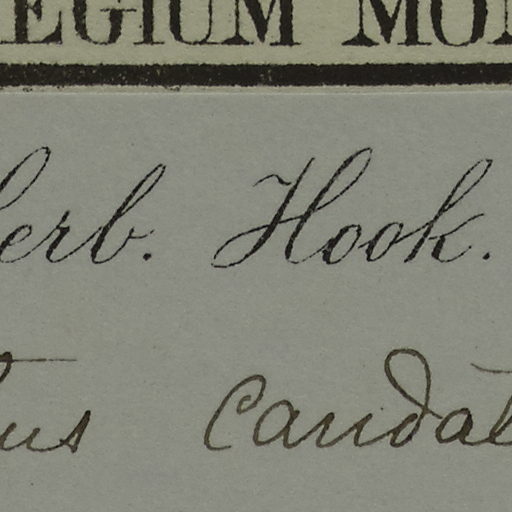 EGIUM MO
erb. Hook.
us caudat